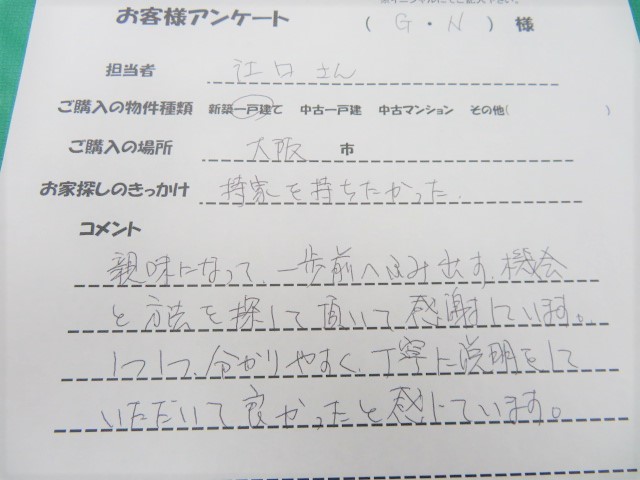 お客様アンケート ( G・N ) 様
担当者 江口さん
ご購入の物件種類 新築一戸建て 中古一戸建 中古マンション その他( )
ご購入の場所 大阪 市
お家探しのきっかけ 持家を持ちたかった.
コメント
親味になって、一歩前へふみ出す、機会
と方法を探して頂いて感謝しています。
1つ1つ、分かりやすく、丁寧に説明をして
いただいて良かったと感じています。